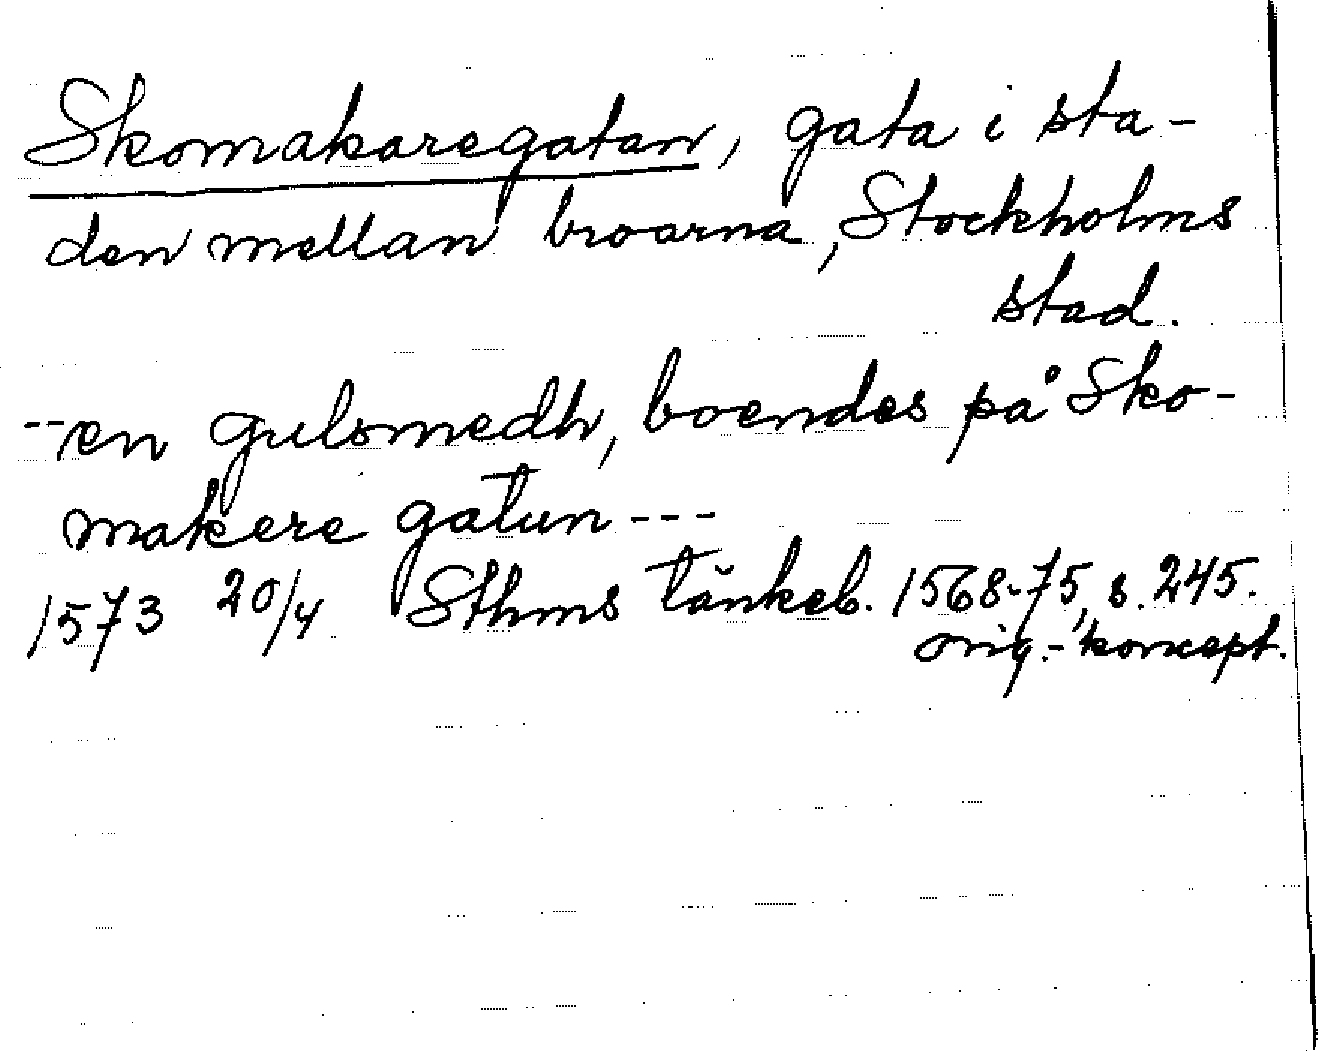 Skomakaregatan, gata i sta-
den mellan broarna, Stockholms
stad.
--en gulsmedh, boendes på Sko-
makere gatun ---
1573 20/4 Sthms tänkeb. 1568-75, s. 245.
orig.-koncept.